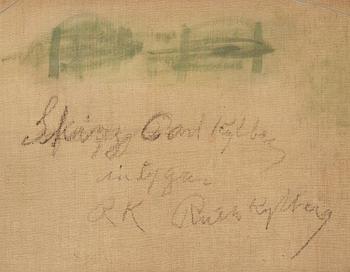 Skizz Carl Kylberg
intygar
RK Ruth Kylberg